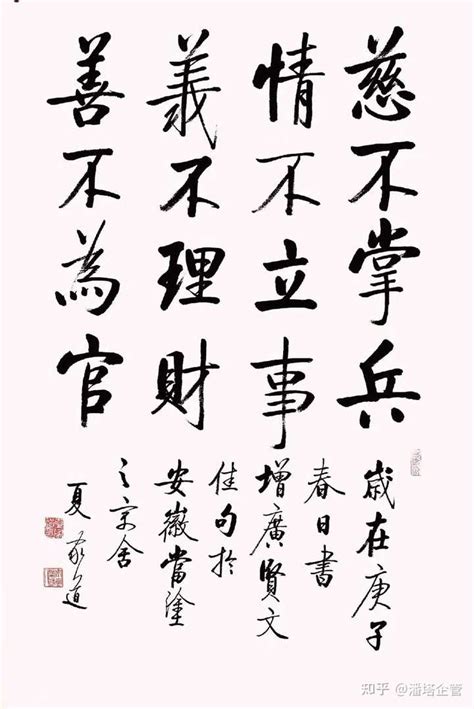 慈不掌兵
情不立事
義不理財
善不為官
歲在庚子
春日書
增廣賢文
佳句於
安徽當塗
之寓舍
夏家道
知乎 @潘塔企管